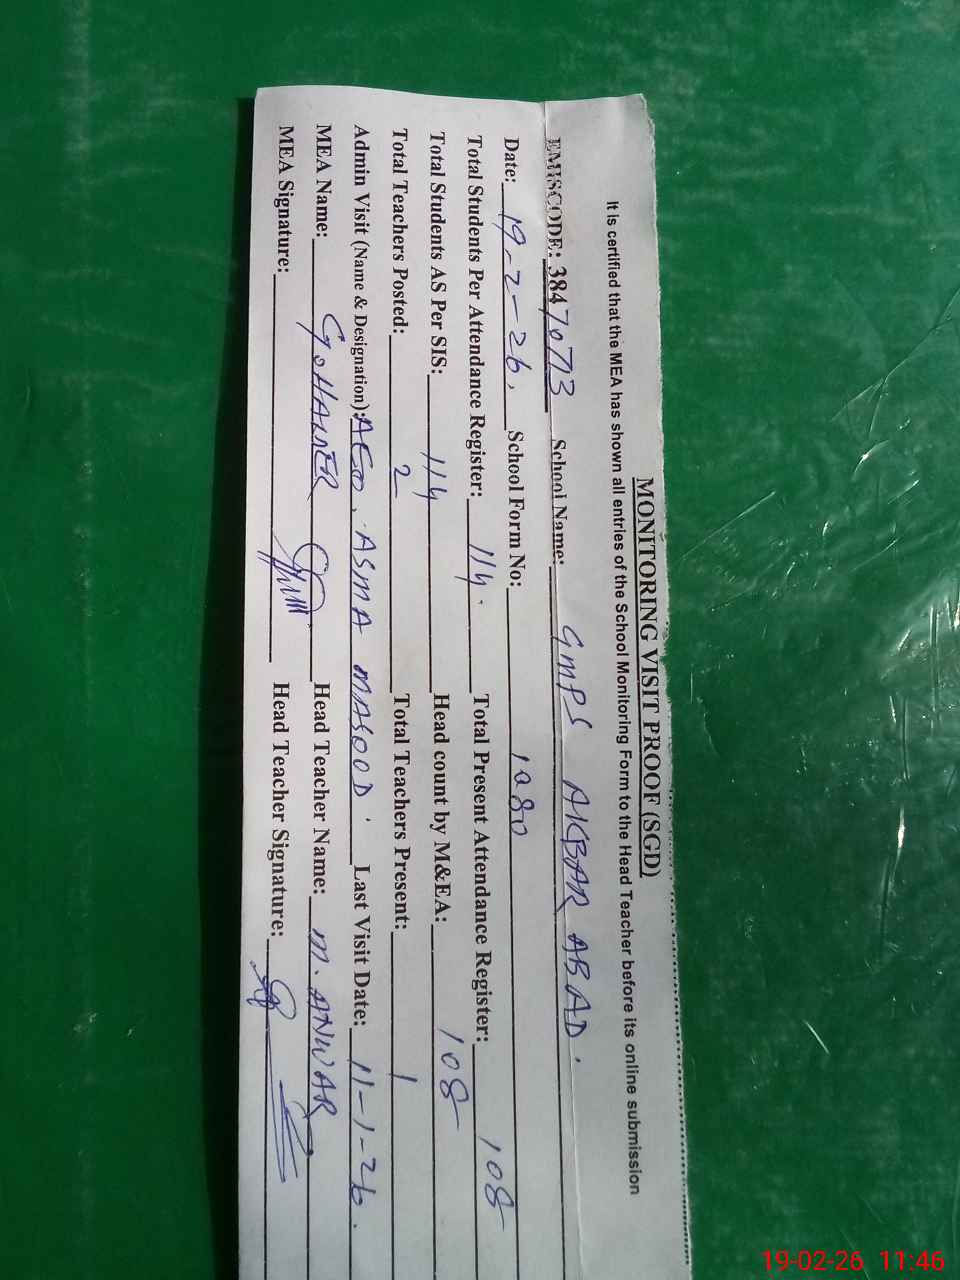 MONITORING VISIT PROOF (SGD)
It is certified that the MEA has shown all entries of the School Monitoring Form to the Head Teacher before its online submission
EMISCODE: 3847073 School Name: GMPS AKBAR ABAD.
Date: 19-2-26. School Form No: 1080
Total Students Per Attendance Register: 114. Total Present Attendance Register: 108
Total Students AS Per SIS: 114 Head count by M&EA: 108
Total Teachers Posted: 2 Total Teachers Present: 1
Admin Visit (Name & Designation): AEO, ASMA MASOOD. Last Visit Date: 11-1-26.
MEA Name: G. HAIDER Head Teacher Name: M. ANWAR
MEA Signature: Head Teacher Signature:
19-02-26 11:46